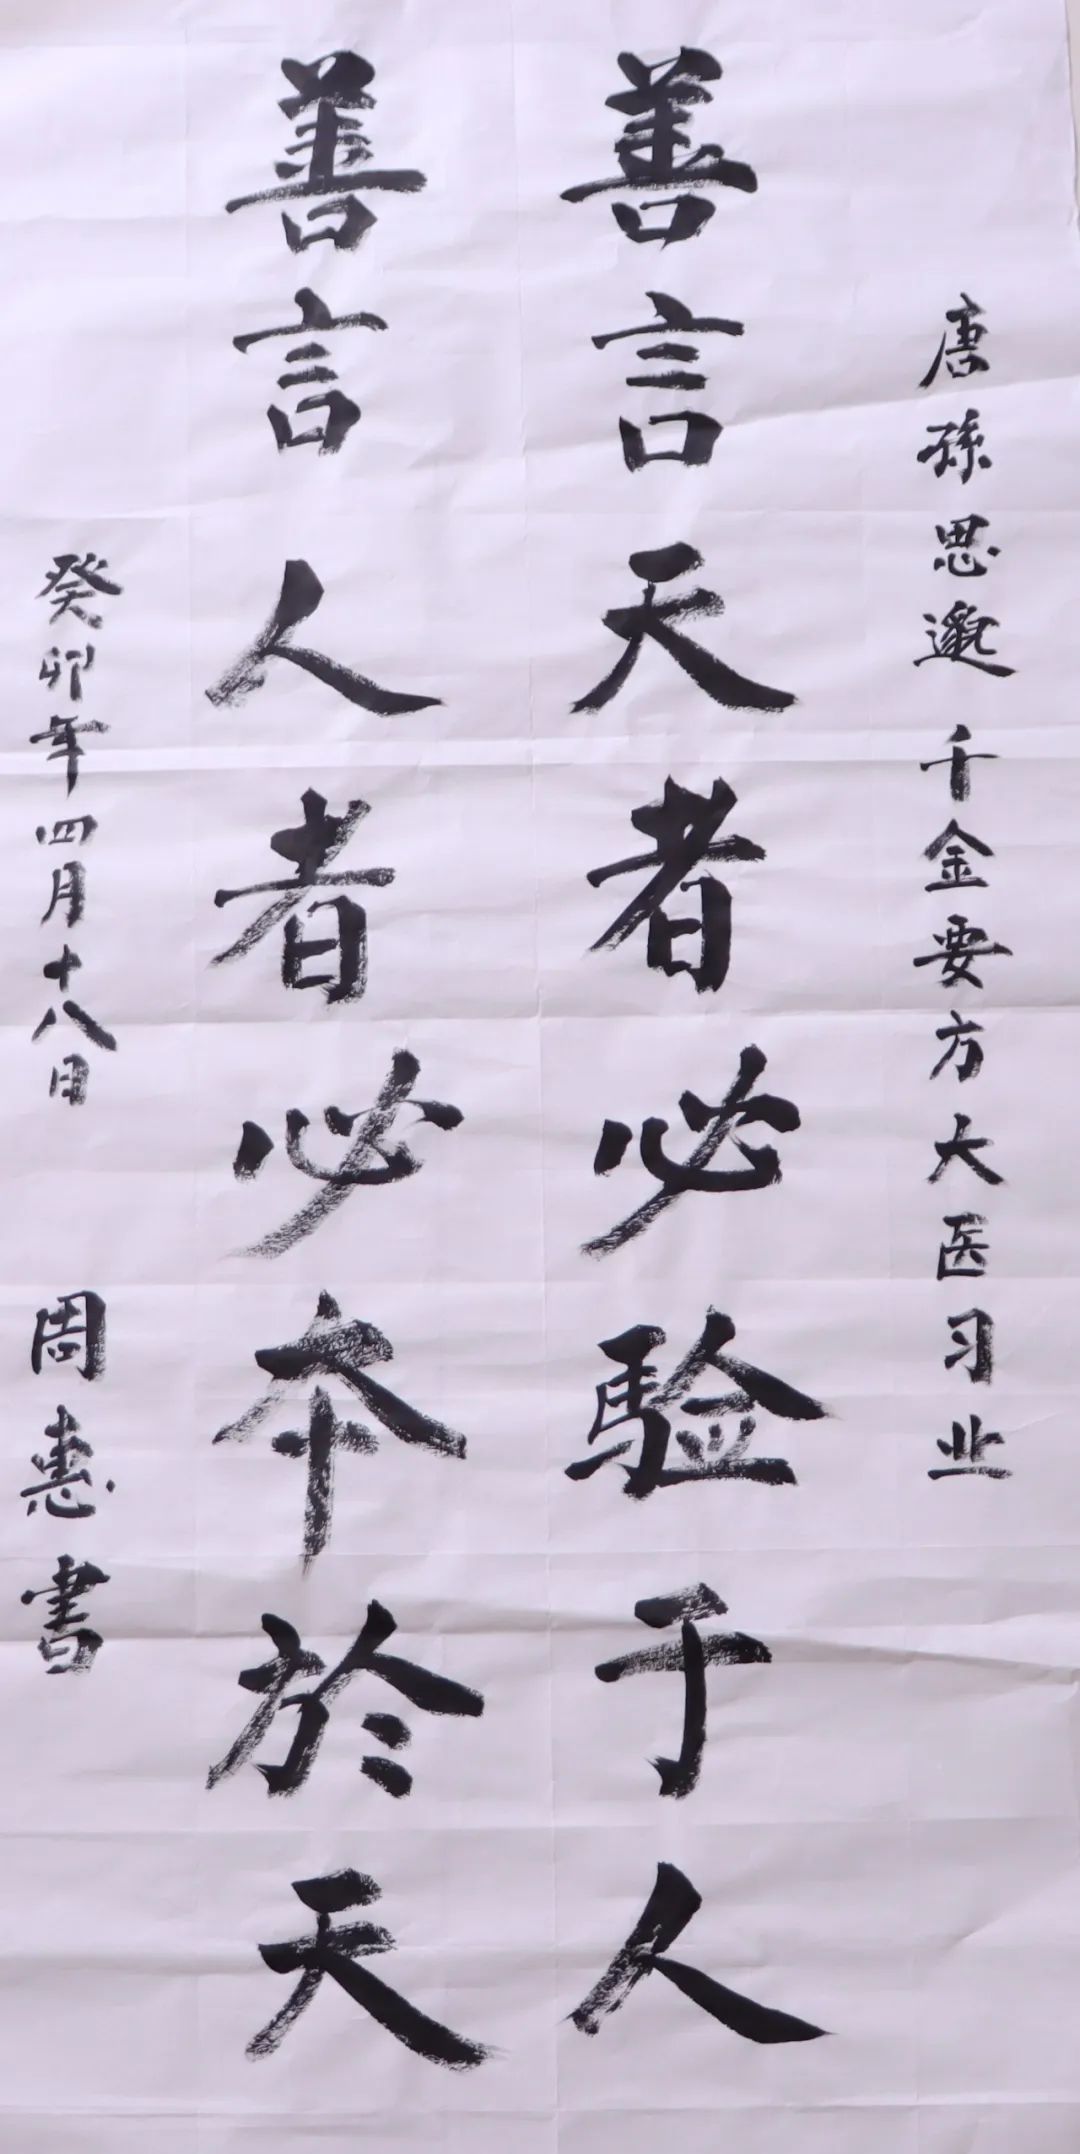 唐孫思邈千金要方大医习业
善言天者必驗于人
善言人者必本於天
癸卯年四月十八日
周惠書